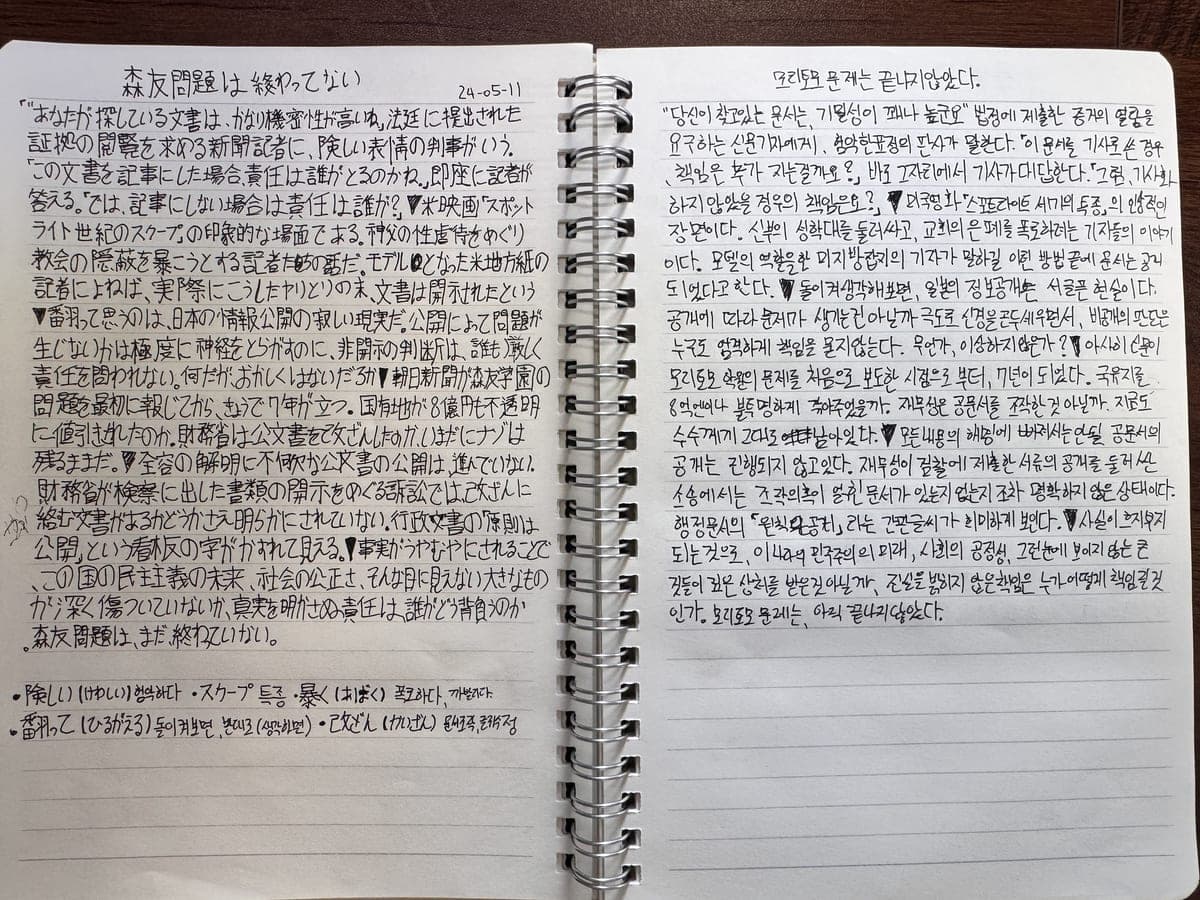 森友問題は終わってない
24-05-11
「"あなたが探している文書は、かなり機密性が高いね。」法廷に提出された
証拠の閲覧を求める新聞記者に、険しい表情の判事がいう。
「この文書を記事にした場合、責任は誰がとるのかね。」即座に記者が
答える。「では、記事にしない場合は責任は誰が？」▼米映画「スポット
ライト 世紀のスクープ」の印象的な場面である。神父の性虐待をめぐり
教会の隠蔽を暴こうとする記者たちの話だ。モデルとなった米地方紙の
記者によねば、実際にこうしたやりとりの末、文書は開示されたという
▼翻って思うのは、日本の情報公開の寂しい現実だ。公開によって問題が
生じないかは極度に神経をとらがすのに、非開示の判断は、誰も厳しく
責任を問われない。何だが、おかしくはないだろか▼朝日新聞が森友学園の
問題を最初に報じてから、きょうで7年が立つ。国有地が8億円も不透明
に値引きされたのか。財務省は公文書を改ざんしたのか、いまだにナゾは
残るままだ。▼全容の解明に不可欠な公文書の公開は、進んでいない。
財務省が検察に出した書類の開示をめぐる訴訟では、改ざんに
絡む文書があるかどうかさえ明らかにされていない。行政文書の「原則は
公開」という看板の字がかすれて見える。▼事実がうやむやにされることで
、この国の民主主義の未来、社会の公正さ、そんな目に見えない大きなもの
が深く傷ついていないか、真実を明かさぬ責任は、誰がどう背負うのか
。森友問題は、まだ、終わていない。
・険しい (けわしい) 험악하다 ・スクープ 특종 ・暴く (あばく) 폭로하다, 까발리다.
・翻って (ひるがえる) 돌이켜보면, 반대로 (생각하면) ・改ざん (かいざん) 문서조작,
모리토모 문제는 끝나지않았다.
"당신이 찾고있는 문서는, 기밀성이 꽤나 높군요" 법정에 제출한 증거의 열람을
요구하는 신문기자에게, 험악한표정의 판사가 말한다. "이 문서를 기사로 쓴 경우
, 책임은 누가 지는걸까요?」 바로 그자리에서 기사가 대답한다. 「그럼, 기사화
하지 않았을 경우의 책임은요?」 ▼ 미국영화 「스포트라이트 세기의 특종」의 인상적인
장면이다. 신부의 성학대를 둘러싸고, 교회의 은폐를 폭로하려는 기자들의 이야기
이다. 모델의 역할을한 미지방잡지의 기자가 말하길 이런 방법 끝에 문서는 공개
되었다고 한다. ▼ 돌이켜생각해보면, 일본의 정보공개는 서글픈 현실이다.
공개에 따라 문제가 생기는건 아닐까 극도로 신경을 곤두세우면서, 비공개의 판단은
누구도 엄격하게 책임을 묻지않는다. 무언가, 이상하지 않은가? ▼ 아사히 신문이
모리토모 학원의 문제를 처음으로 보도한 시점으로 부터, 7년이 되었다. 국유지를
8억엔이나 불투명하게 깎아주었을까. 재무성은 공문서를 조작한것 아닐까. 지금도
수수께끼 그대로 남아있다. ▼ 모든내용의 해명에 빠져서는안될 공문서의
공개는 진행되지 않고있다. 재무성이 검찰에 제출한 서류의 공개를 둘러싼
소송에서는 조작의혹이 얽힌 문서가 있는지 없는지 조차 명확하지 않은 상태이다.
행정문서의 「원칙은공개」라는 간판글씨가 희미하게 보인다. ▼ 사실이 흐지부지
되는것으로, 이 나라의 민주주의의 미래, 사회의 공정성, 그런눈에 보이지 않는 큰
것들이 깊은 상처를 받은것 아닐까, 진실을 밝히지 않은책임은 누가 어떻게 책임질것
인가. 모리토모 문제는, 아직 끝나지 않았다.